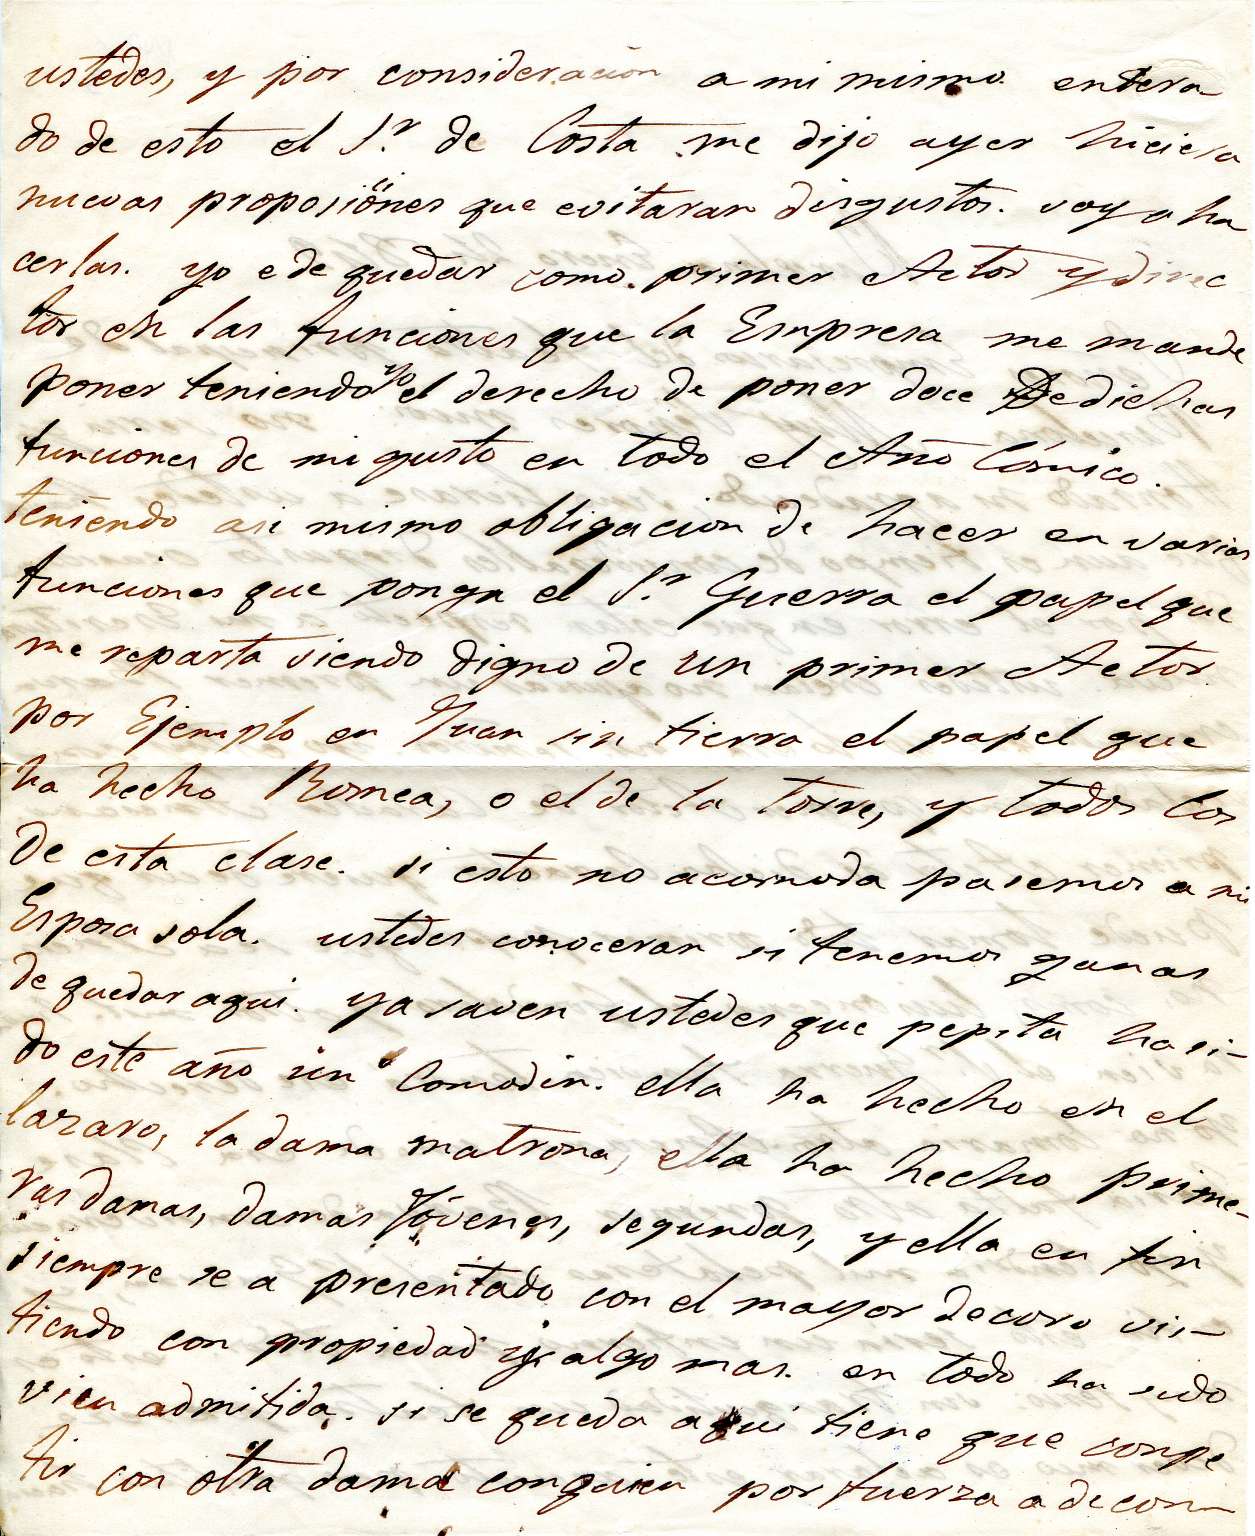 ustedes, y por consideracion a mi mismo. entera
do de esto el Sr. de Costa me dijo ayer hiciesa
nuevas proposiones que evitaran disgustos. voy a ha
cerlas. yo e de quedar como primer Actor y direc
tor en las funciones que la Empresa me mande
poner teniendo yo el derecho de poner doce De dichas
funciones de mi gusto en todo el Año Cómico.
teniendo asi mismo obligacion de hacer en varias
funciones que ponga el Sr. Guerra el papel que
me reparta siendo digno de un primer Actor.
por Ejemplo en Juan sin tierra el papel que
ha hecho Romea, o el de la Torre, y todos los
De esta clase. si esto no acomoda pasemos a mi
Esposa sola. ustedes conoceran si tenemos ganas
de quedar aqui. ya saven ustedes que pepita ha si-
do este año un Comodin. ella ha hecho en el
lazaro, la dama matrona, ella ha hecho prime-
ras damas, damas Jóvenes, segundas, y ella en fin
siempre se a presentado con el mayor decoro vis-
tiendo con propiedad y algo mas. en todo ha sido
vien admitida. si se queda aqui tiene que conpe
tir con otra dama conquien por fuerza a de con-